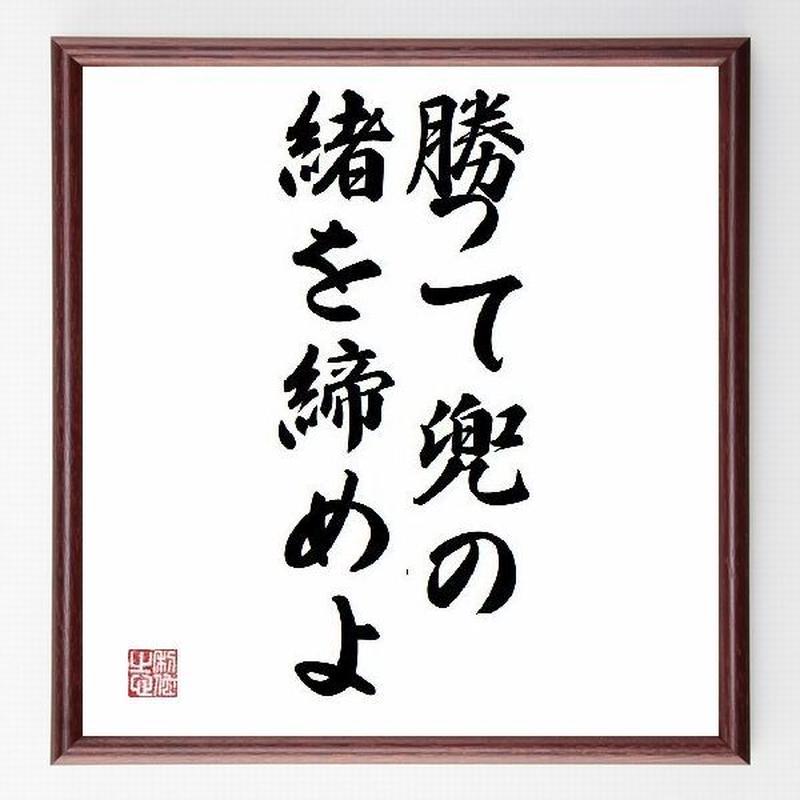 勝って兜の
緒を締めよ